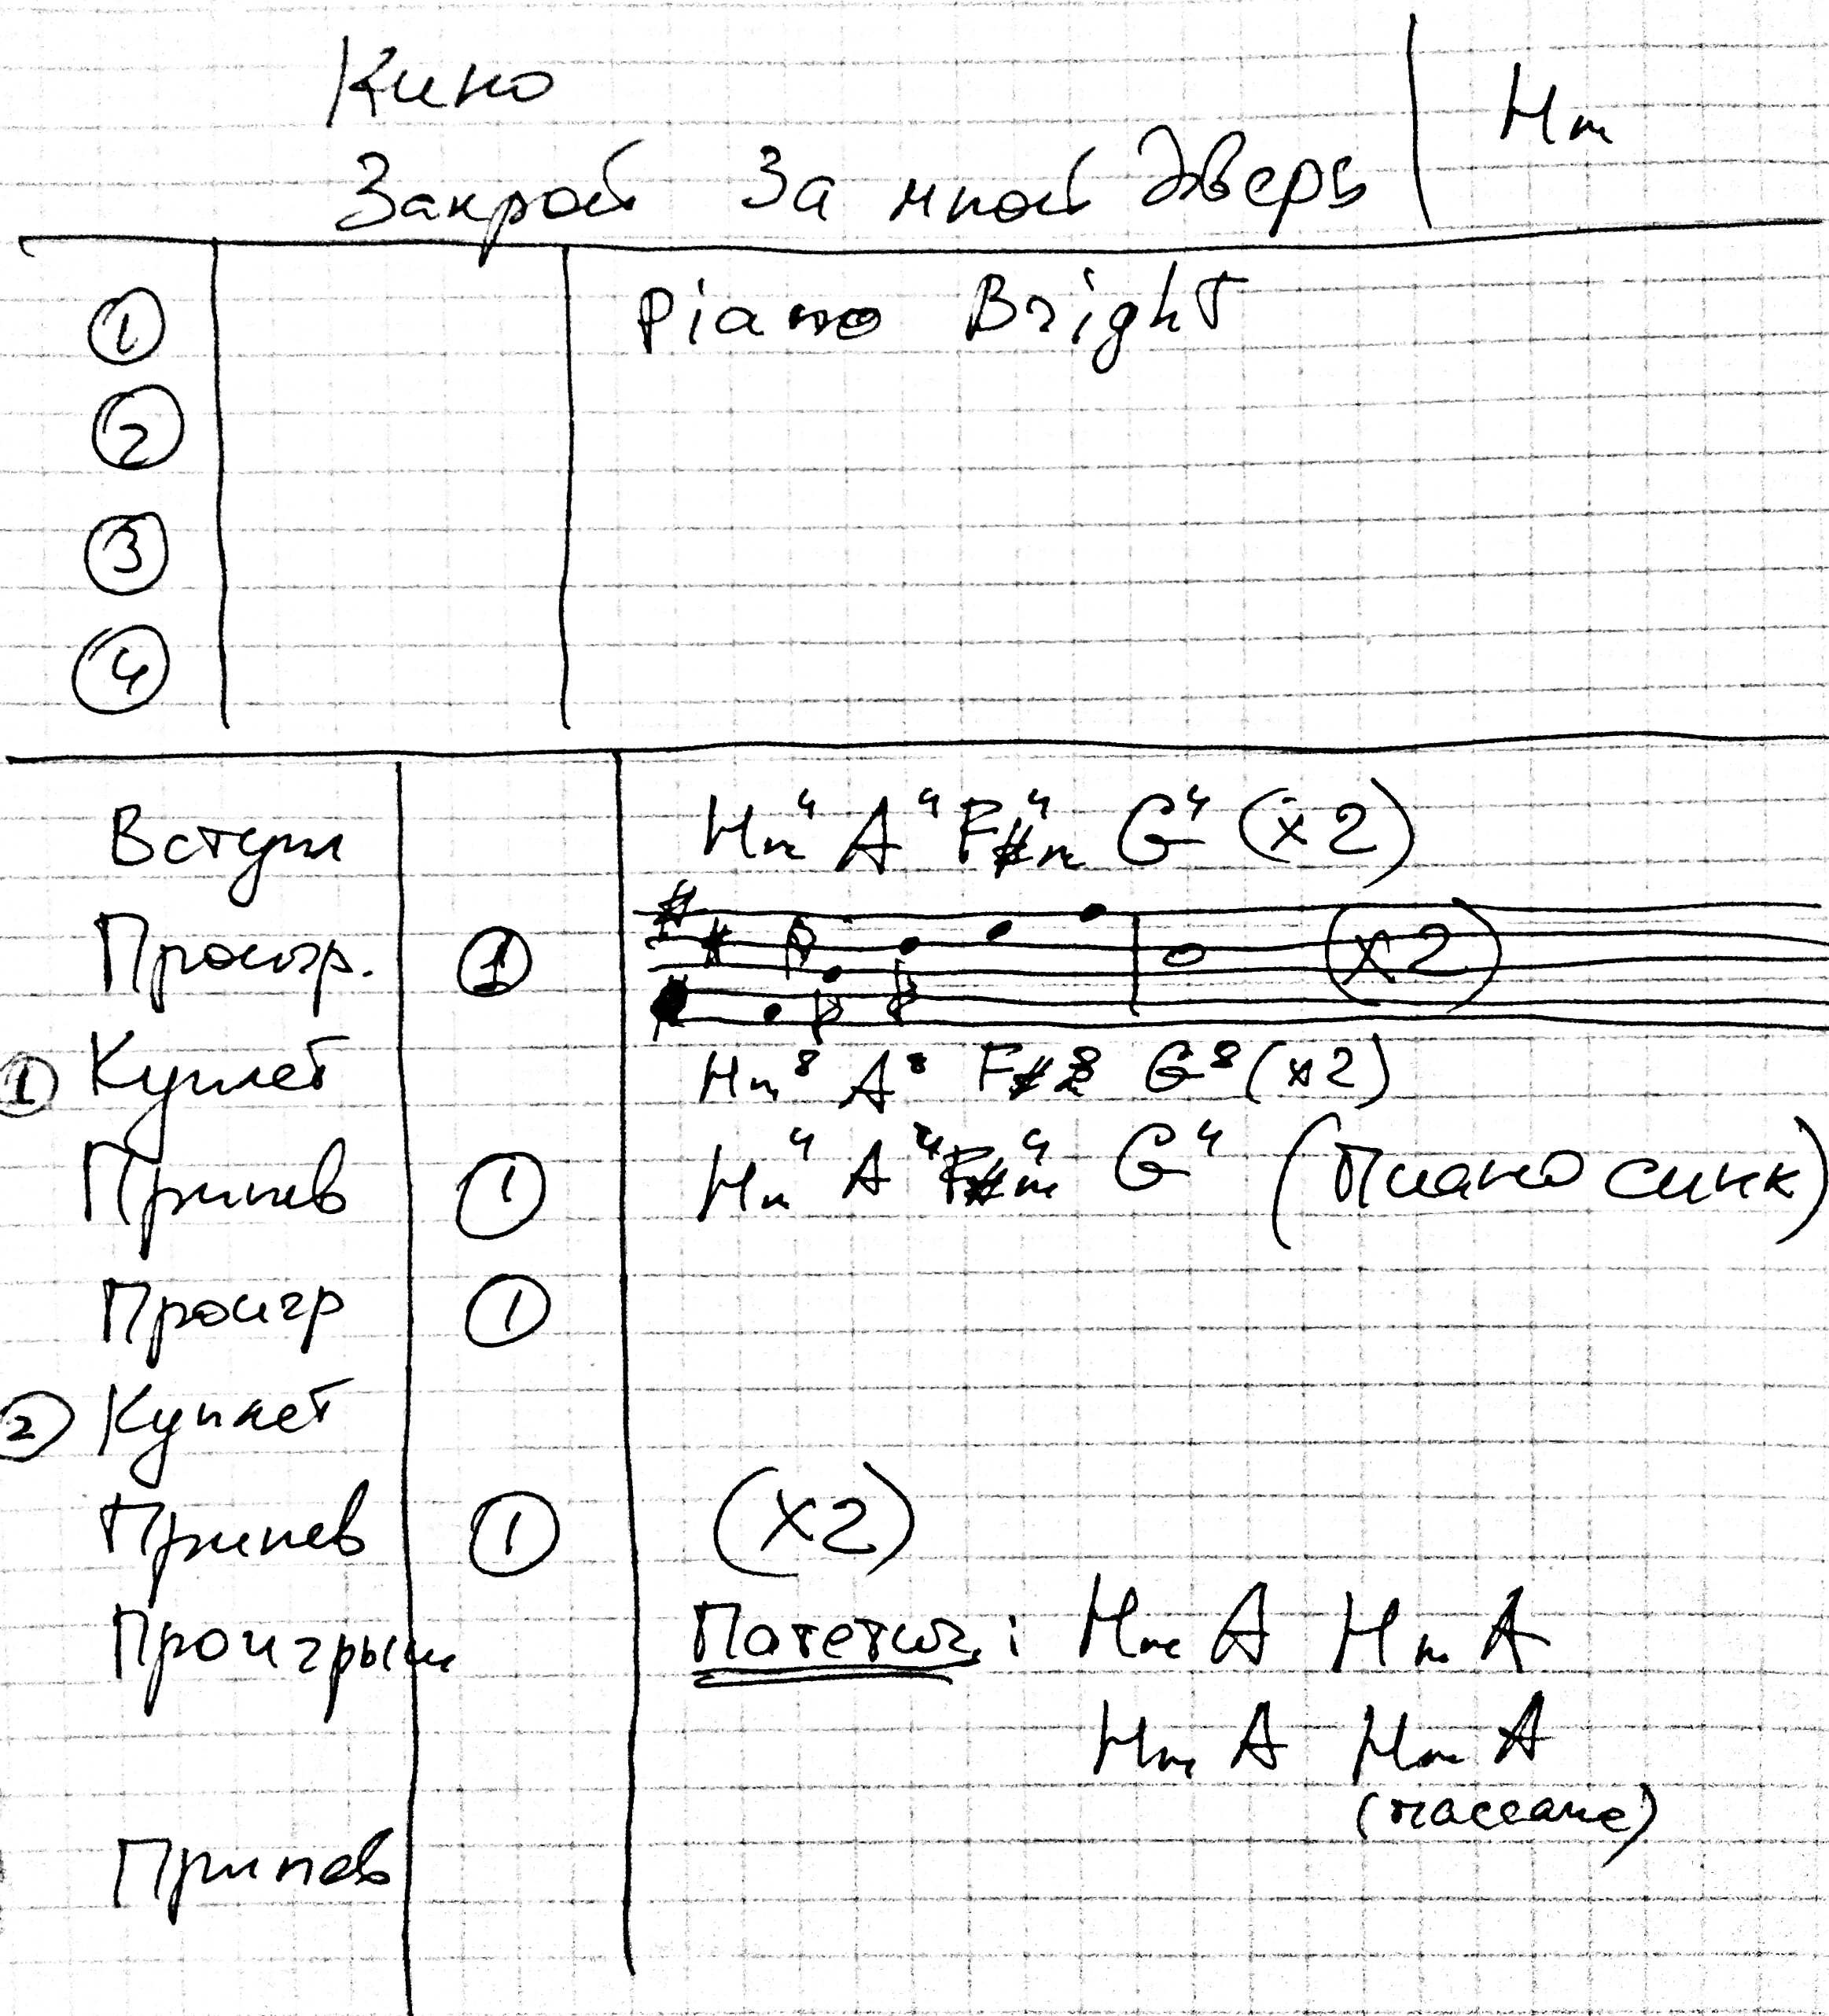 Кино
Закрой За мной дверь | Hm
① Piano Bright
②
③
④
Вступл Hm⁴ A⁴ F#m⁴ G⁴ (x2)
Проигр. ① (x2)
① Куплет Hm⁸ A⁸ F#m⁸ G⁸ (x2)
Припев ① Hm⁴ A⁴ F#m⁴ G⁴ (Пиано синк)
Проигр ①
② Куплет
Припев ① (x2)
Проигрыш Патетич.: Hm A Hm A
Hm A Hm A
(пассаж)
Припев